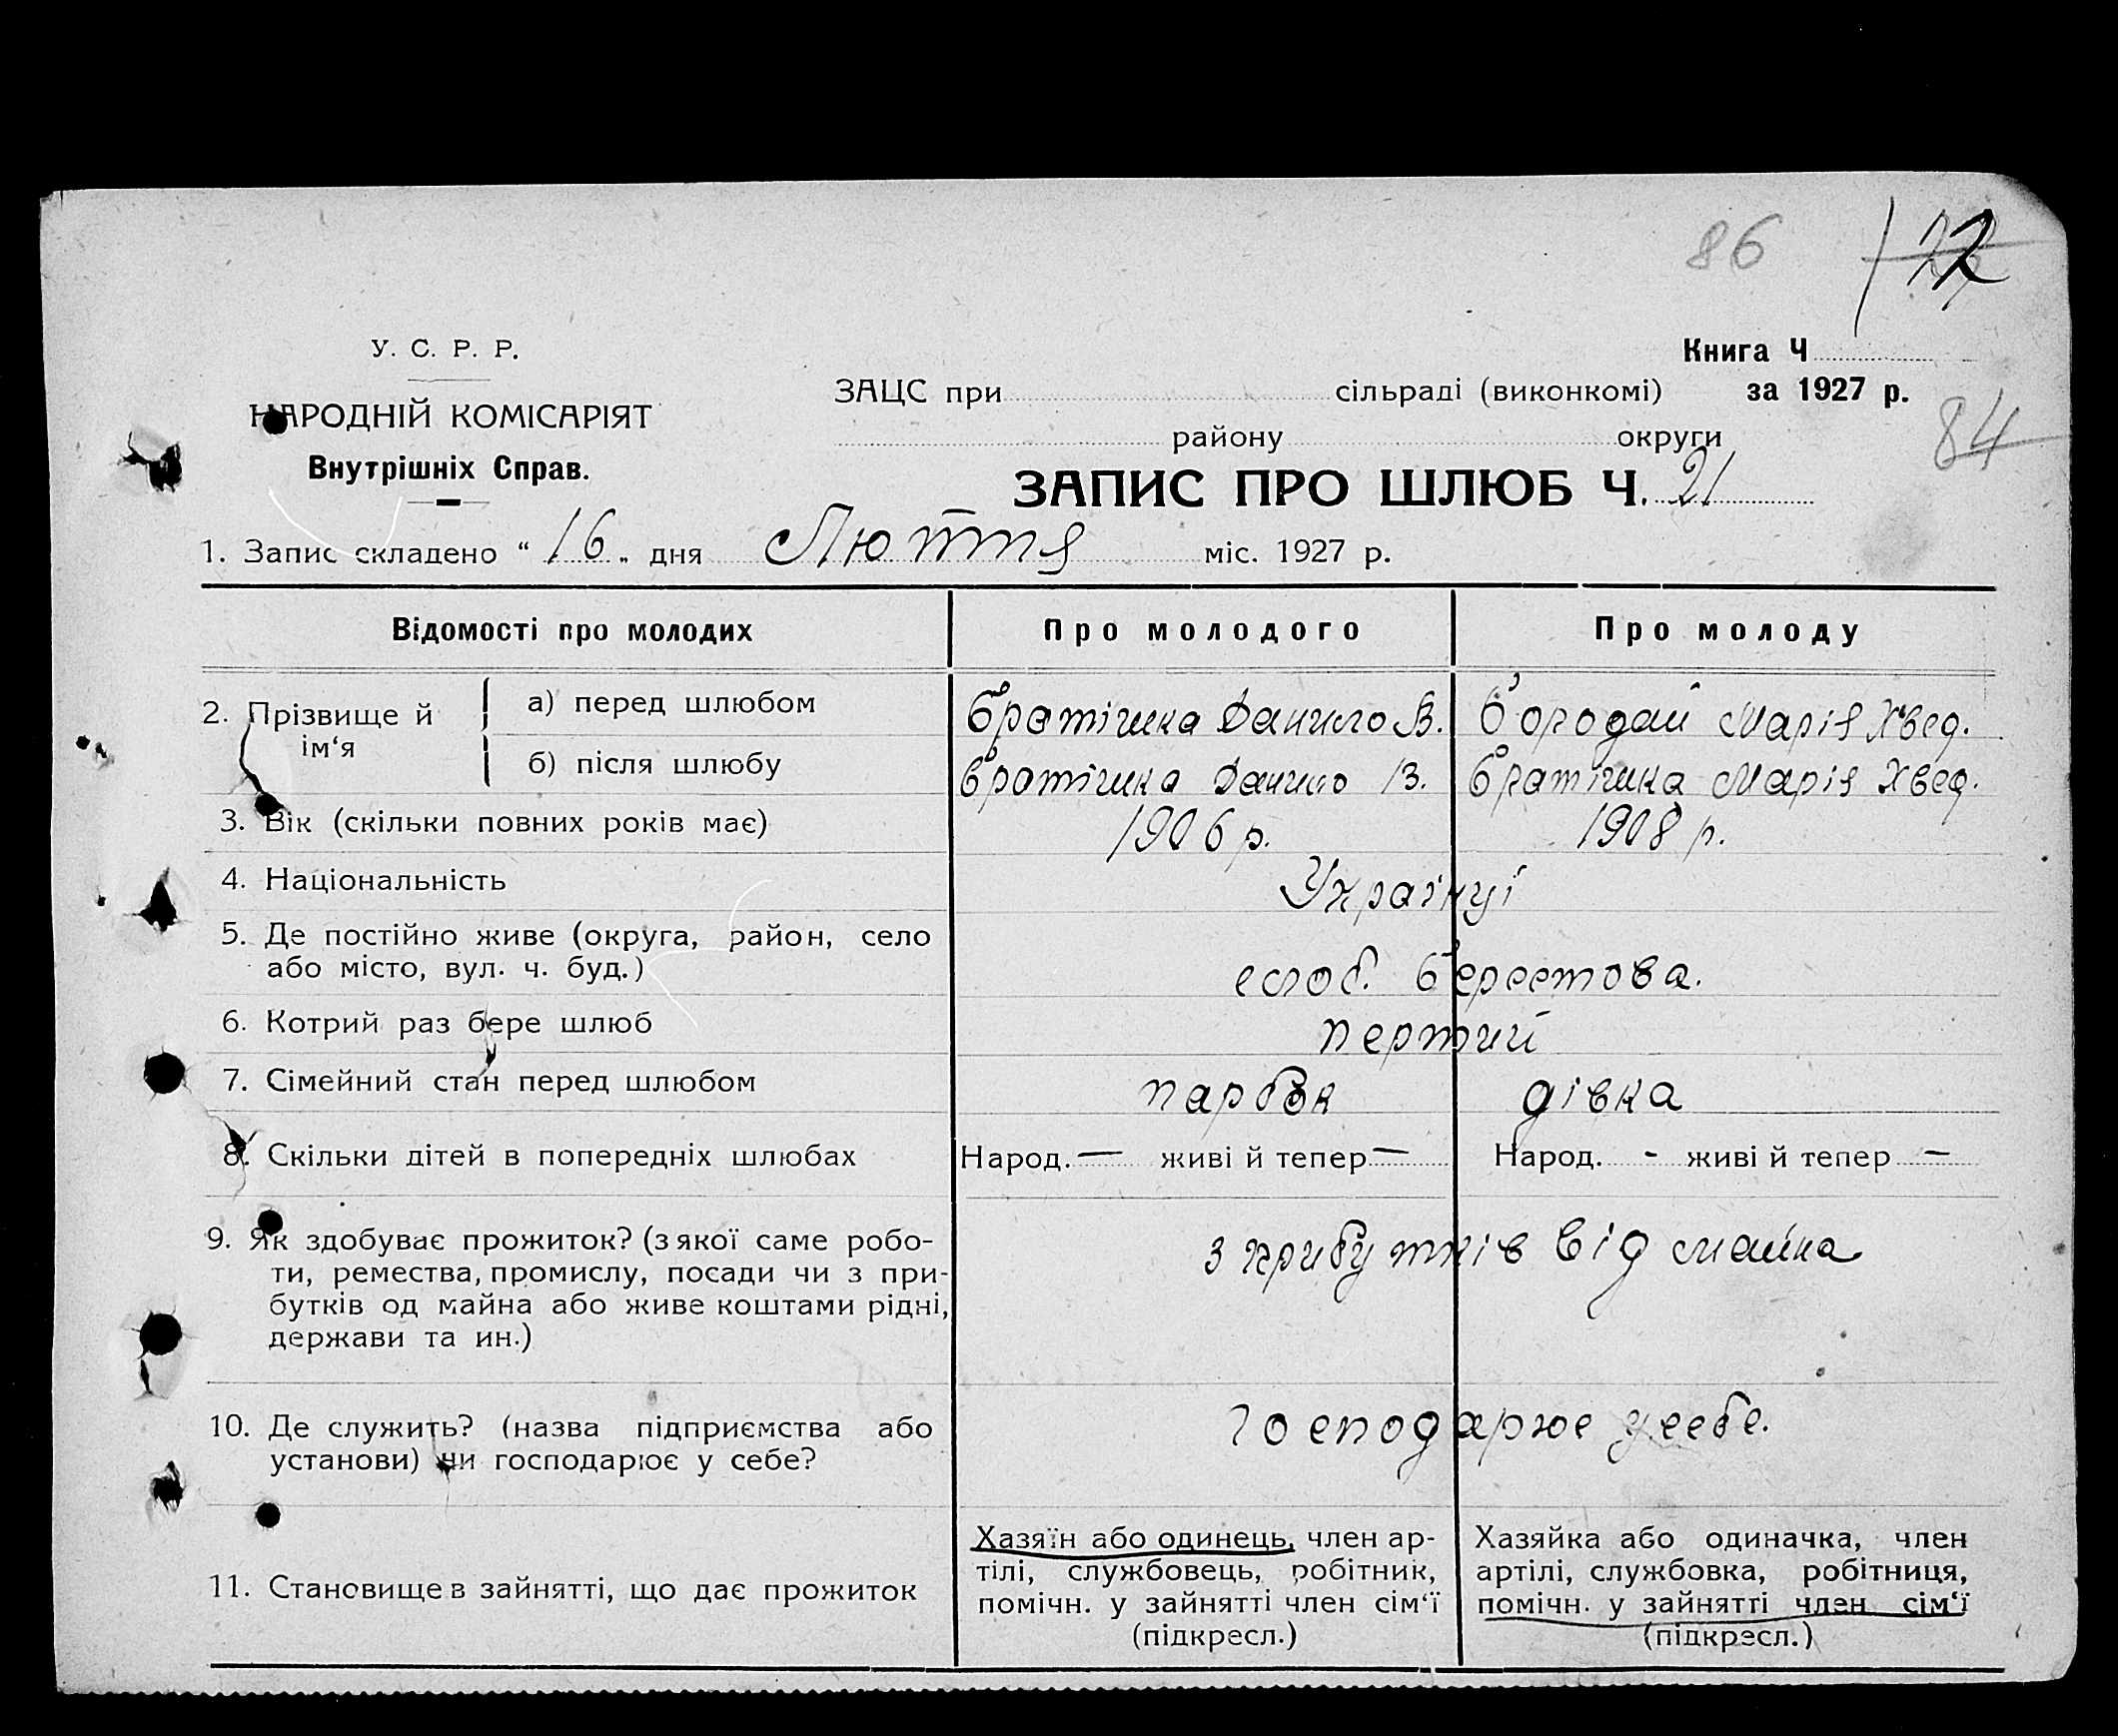 86 122
У. С. Р. Р.
Книга Ч
ЗАЦС при сільраді (виконкомі) за 1927 р.
НАРОДНІЙ КОМІСАРІЯТ
84
району округи
Внутрішніх Справ.
ЗАПИС ПРО ШЛЮБ Ч. 21
1. Запис складено “ 16 „ дня Лютня міс. 1927 р.
Відомості про молодих Про молодого Про молоду
2. Прізвище й ім‘я
а) перед шлюбом Братішка Данило В. Бородай Марія Хвед.
б) після шлюбу Братішка Данило В. Братішка Марія Хвед.
3. Вік (скільки повних років має) 1906 р. 1908 р.
4. Національність Українці
5. Де постійно живе (округа, район, село
або місто, вул. ч. буд.) слоб. Берестова.
6. Котрий раз бере шлюб перший
7. Сімейний стан перед шлюбом парубок дівка
8. Скільки дітей в попередніх шлюбах Народ. — живі й тепер — Народ. - живі й тепер —
9. Як здобуває прожиток? (з якої саме робо-
ти, ремества, промислу, посади чи з при-
бутків од майна або живе коштами рідні,
держави та ин.)
з прибутків від майна
10. Де служить? (назва підприємства або
установи) чи господарює у себе?
господарює у себе.
11. Становище в зайнятті, що дає прожиток
Хазяїн або одинець, член ар-
тілі, службовець, робітник,
помічн. у зайнятті член сім‘ї
(підкресл.)
Хазяйка або одиначка, член
артілі, службовка, робітниця,
помічн. у зайнятті член сім‘ї
(підкресл.)